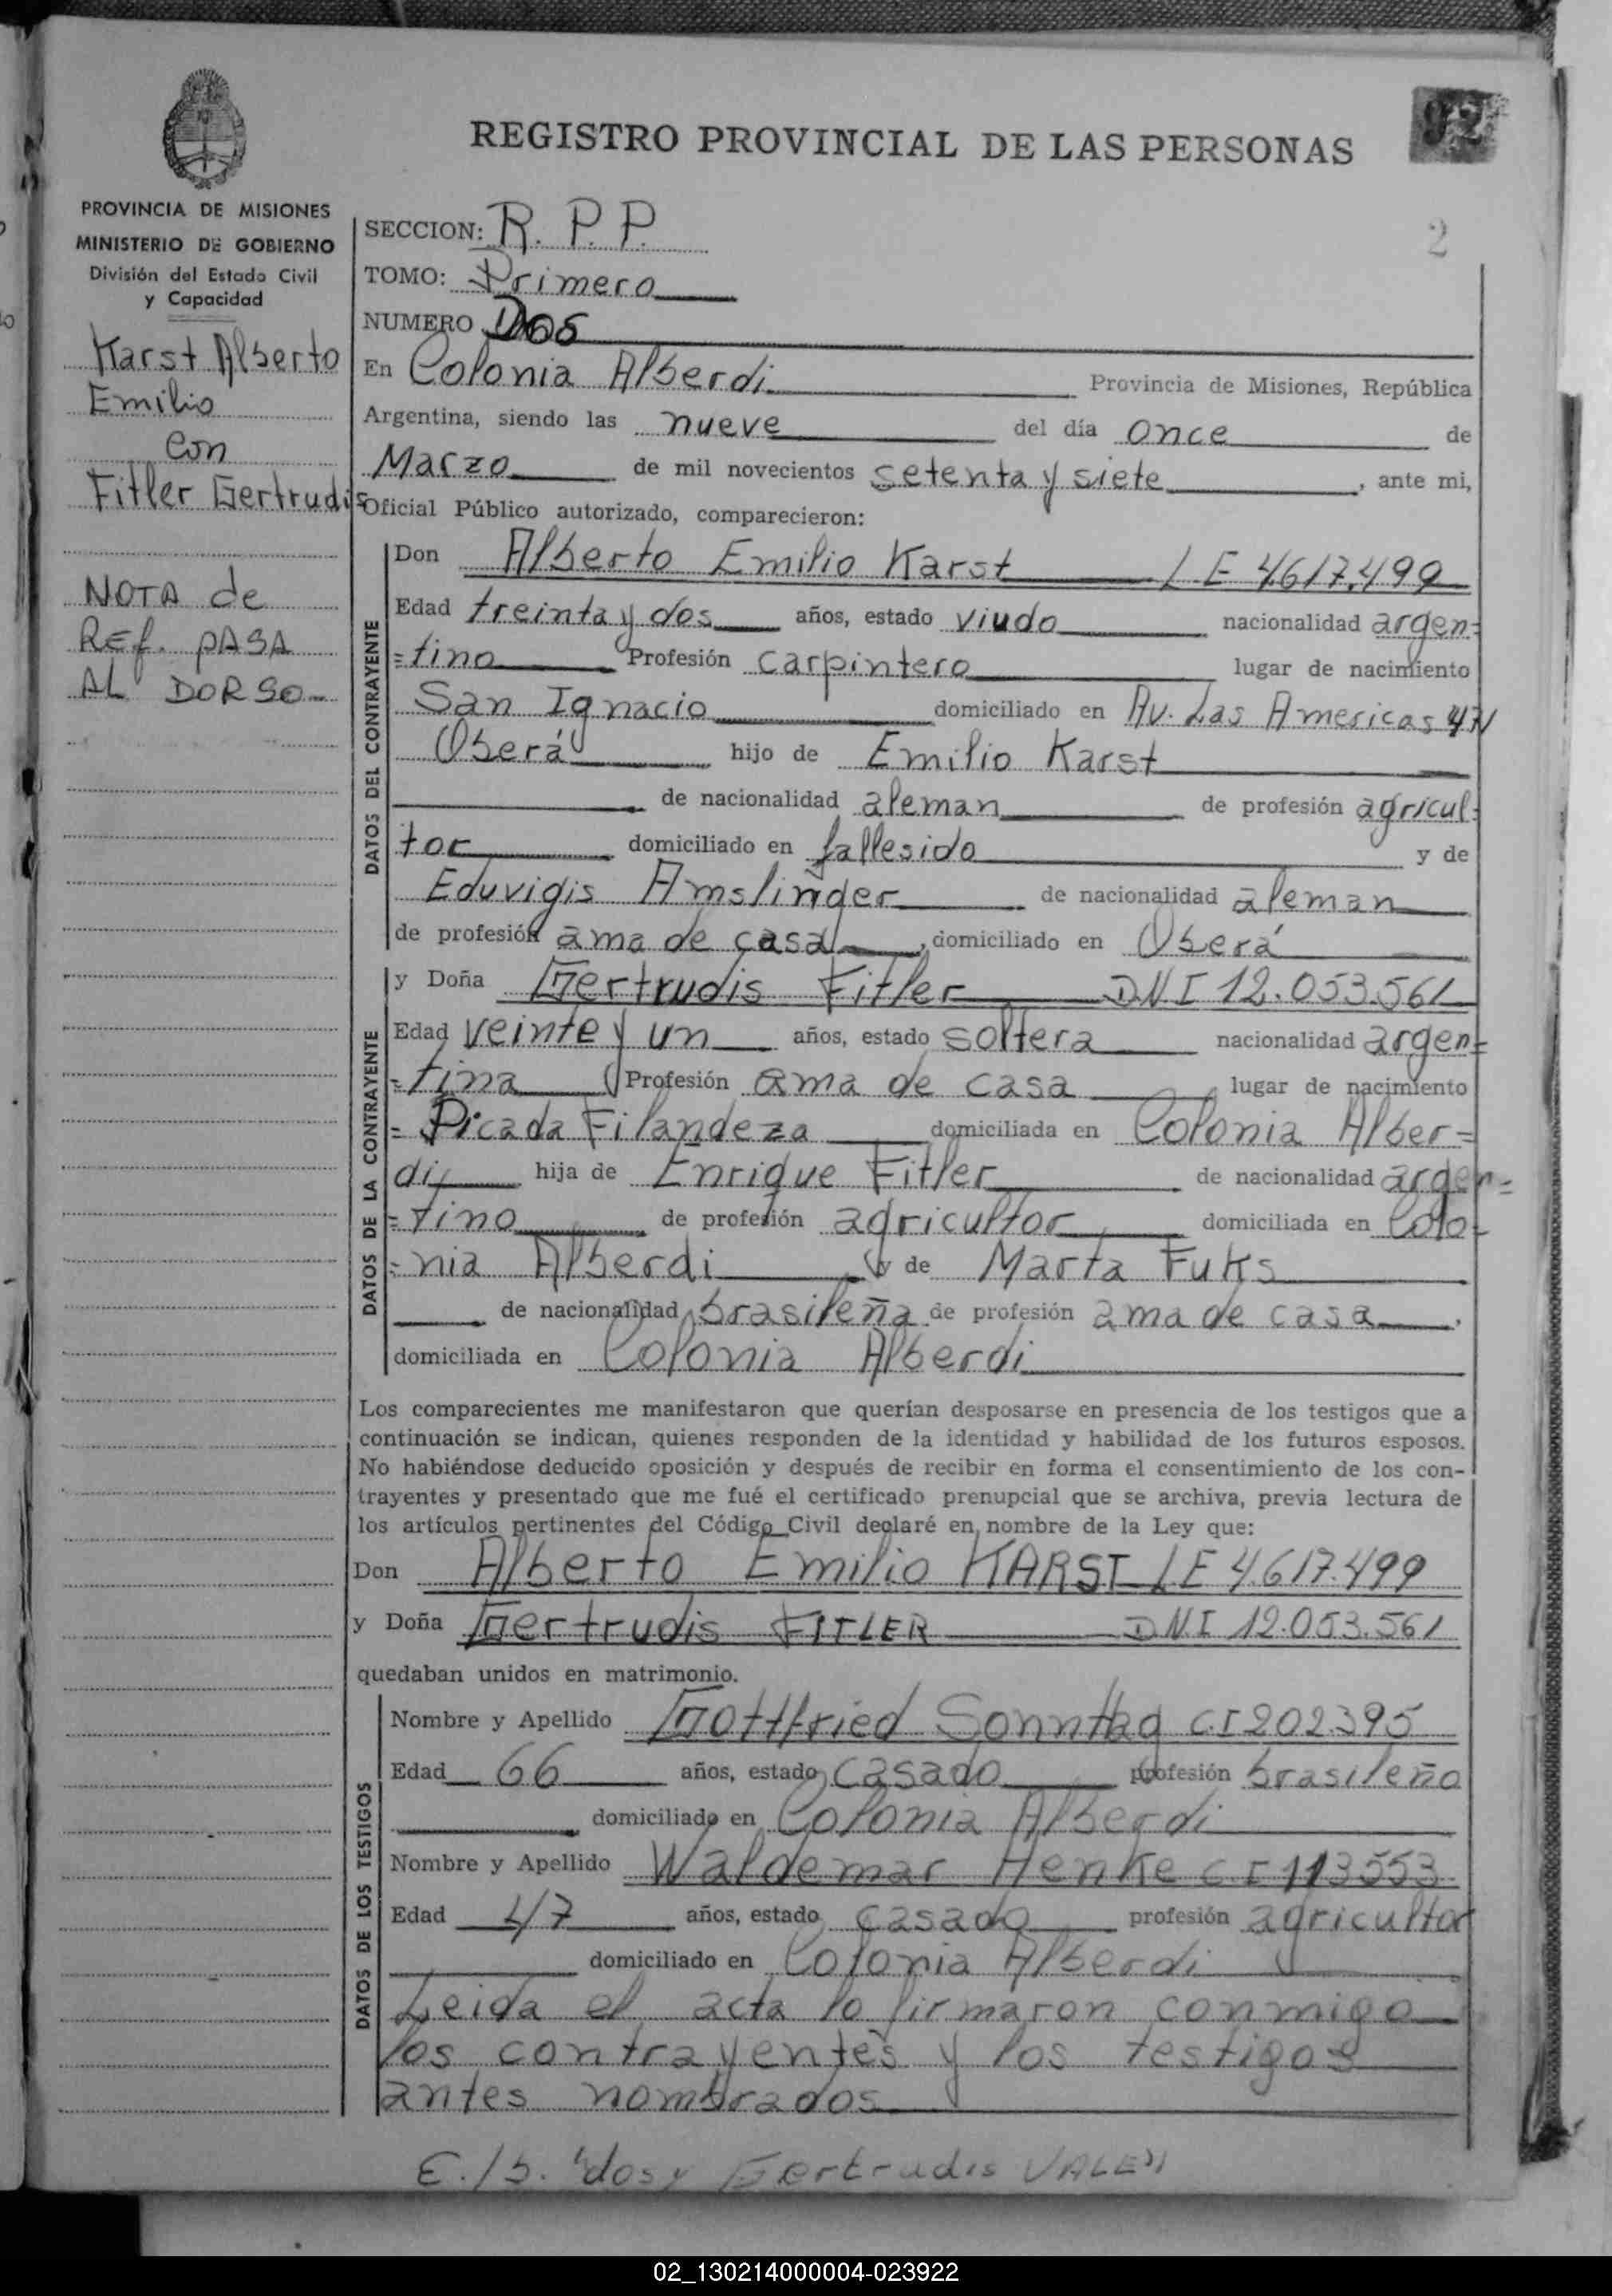 REGISTRO PROVINCIAL DE LAS PERSONAS
92
2
PROVINCIA DE MISIONES
MINISTERIO DE GOBIERNO
División del Estado Civil
y Capacidad
Karst Alberto
Emilio
con
Fitler Gertrudis
NOTA de
REF. PASA
AL DORSO
SECCION: R. P. P.
TOMO: Primero
NUMERO Dos
En Colonia Alberdi Provincia de Misiones, República
Argentina, siendo las nueve del día once de
Marzo de mil novecientos setenta y siete, ante mi,
Oficial Público autorizado, comparecieron:
DATOS DEL CONTRAYENTE
Don Alberto Emilio Karst LE 4.617.499
Edad treinta y dos años, estado viudo nacionalidad argen=
=tino Profesión carpintero lugar de nacimiento
San Ignacio domiciliado en Av. Las Americas
Oberá hijo de Emilio Karst
de nacionalidad aleman de profesión agricul=
tor domiciliado en fallesido y de
Eduvigis Amslinger de nacionalidad aleman
de profesión ama de casa, domiciliado en Oberá
DATOS DE LA CONTRAYENTE
y Doña Gertrudis Fitler DNI 12.053.561
Edad veinte y un años, estado soltera nacionalidad argen=
=tina Profesión ama de casa lugar de nacimiento
= Picada Filandeza domiciliada en Colonia Alber=
di hija de Enrique Fitler de nacionalidad argen=
=tino de profesión agricultor domiciliada en Colo=
=nia Alberdi y de Marta Fuks
de nacionalidad brasileña de profesión ama de casa.
domiciliada en Colonia Alberdi
Los comparecientes me manifestaron que querían desposarse en presencia de los testigos que a
continuación se indican, quienes responden de la identidad y habilidad de los futuros esposos.
No habiéndose deducido oposición y después de recibir en forma el consentimiento de los con-
trayentes y presentado que me fué el certificado prenupcial que se archiva, previa lectura de
los artículos pertinentes del Código Civil declaré en nombre de la Ley que:
Don Alberto Emilio KARST LE 4.617.499
y Doña Gertrudis FITLER DNI 12.053.561
quedaban unidos en matrimonio.
DATOS DE LOS TESTIGOS
Nombre y Apellido Gottfried Sonntag C.I 202.395
Edad 66 años, estado casado profesión brasileño
domiciliado en Colonia Alberdi
Nombre y Apellido Waldemar Henke C I 113553
Edad 47 años, estado casado profesión agricultor
domiciliado en Colonia Alberdi
Leida el acta lo firmaron conmigo
los contrayentes y los testigos
antes nombrados
E./S. "dos y Gertrudis VALE"
02_130214000004-023922